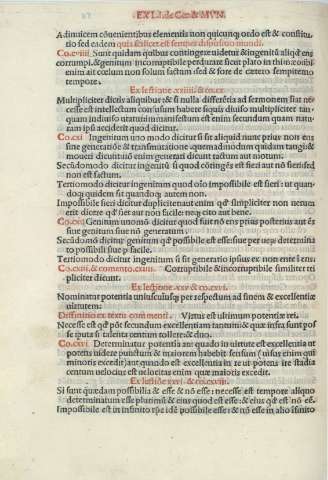 EX Li. de Cœ. & MVN.
Adinuicem cõuenientibus elementis non quicunq; ordo est & constitu
tio sed eadem qua scilicet est semper dispositio mundi.
Sunt quidam quibus contingere uidetur & ingenitũ aliqd ens
corrumpi. & genitum incorruptibile perdurare sicut plato in thim
enim ait cœlum non solum factum sed & fore de cætero sempiterno
tempore.
Ex lectione
Multipliciter dictis aliquibus & si nulla differentia ad sermonem sint ne
cesse est intellectum confusum habere siquis diuiso multipliciter tan
quam indiuiso utatur immanifestum est enim secundum quam natu
ram ipsi accidet quod dicitur.
Ingenitum uno modo dicitur si sit aliquid nunc prius non ens
sine generatiõe & transmutatione. quemadmodum quidam tangi &
moueri dicunt nõ enim generari dicunt tactum aut motum.
Secũdomodo dicitur ingenitũ si quod cõtingẽs est fieri aut factũ esse non
sit dum est.
Tertiomodo dicitur ingenitum quod oĩo impossibile est fieri ut quan
doq; quidem sit quandoq; autem non.
Impossibile fieri dicitur dupliciter aut enim qd simpliciter non uerum
erit dicere qd fiet aut non facile neq; cito aut bene.
Genitum unomõ dicitur quod ens primũ posterius aut ẽs
sine genitum siue nõ generatum
Secũdomõ dicitur genitum qd possibile est esse siue per determinata
possibili siue facili.
Tertiomodo dicitur ingenitum si sit generatio ipsius ex non ente ĩ ens.
Corruptibile & incorruptibile similiter
pliciter dicunt.
Ex lectione
Nominatur potentia uniuscuiusq; per respectum ad finem & excellentiæ
uirtutem.
Diffinitio ex textu commenti. Virtus est ultimum potentiæ rei.
Necesse est qd pẽs secundum excellentiam tantum & quæ infra sunt pos
se sputa si talenta centum tollere & duo.
Determinatur potentia aũ: quado in uirtute est excellentia ut
potens uidere punctum & maiorem habebit sensum (uisus enim qui
minoris excedit) aut quando est excellentia in re ut potens ire stadia
centum uelocius est uelocitas enim quæ maioris excedit.
Ex lectiõe
Si sunt quædam possibilia & esse & nõ esse: necesse est tempore aliquo
determinatum esse plurimũ & eius quod est esse: & eius qd est nõ eẽ.
Impossibile est in infinito tpe idẽ possibile esse: & nõ esse in alio ĩfinito